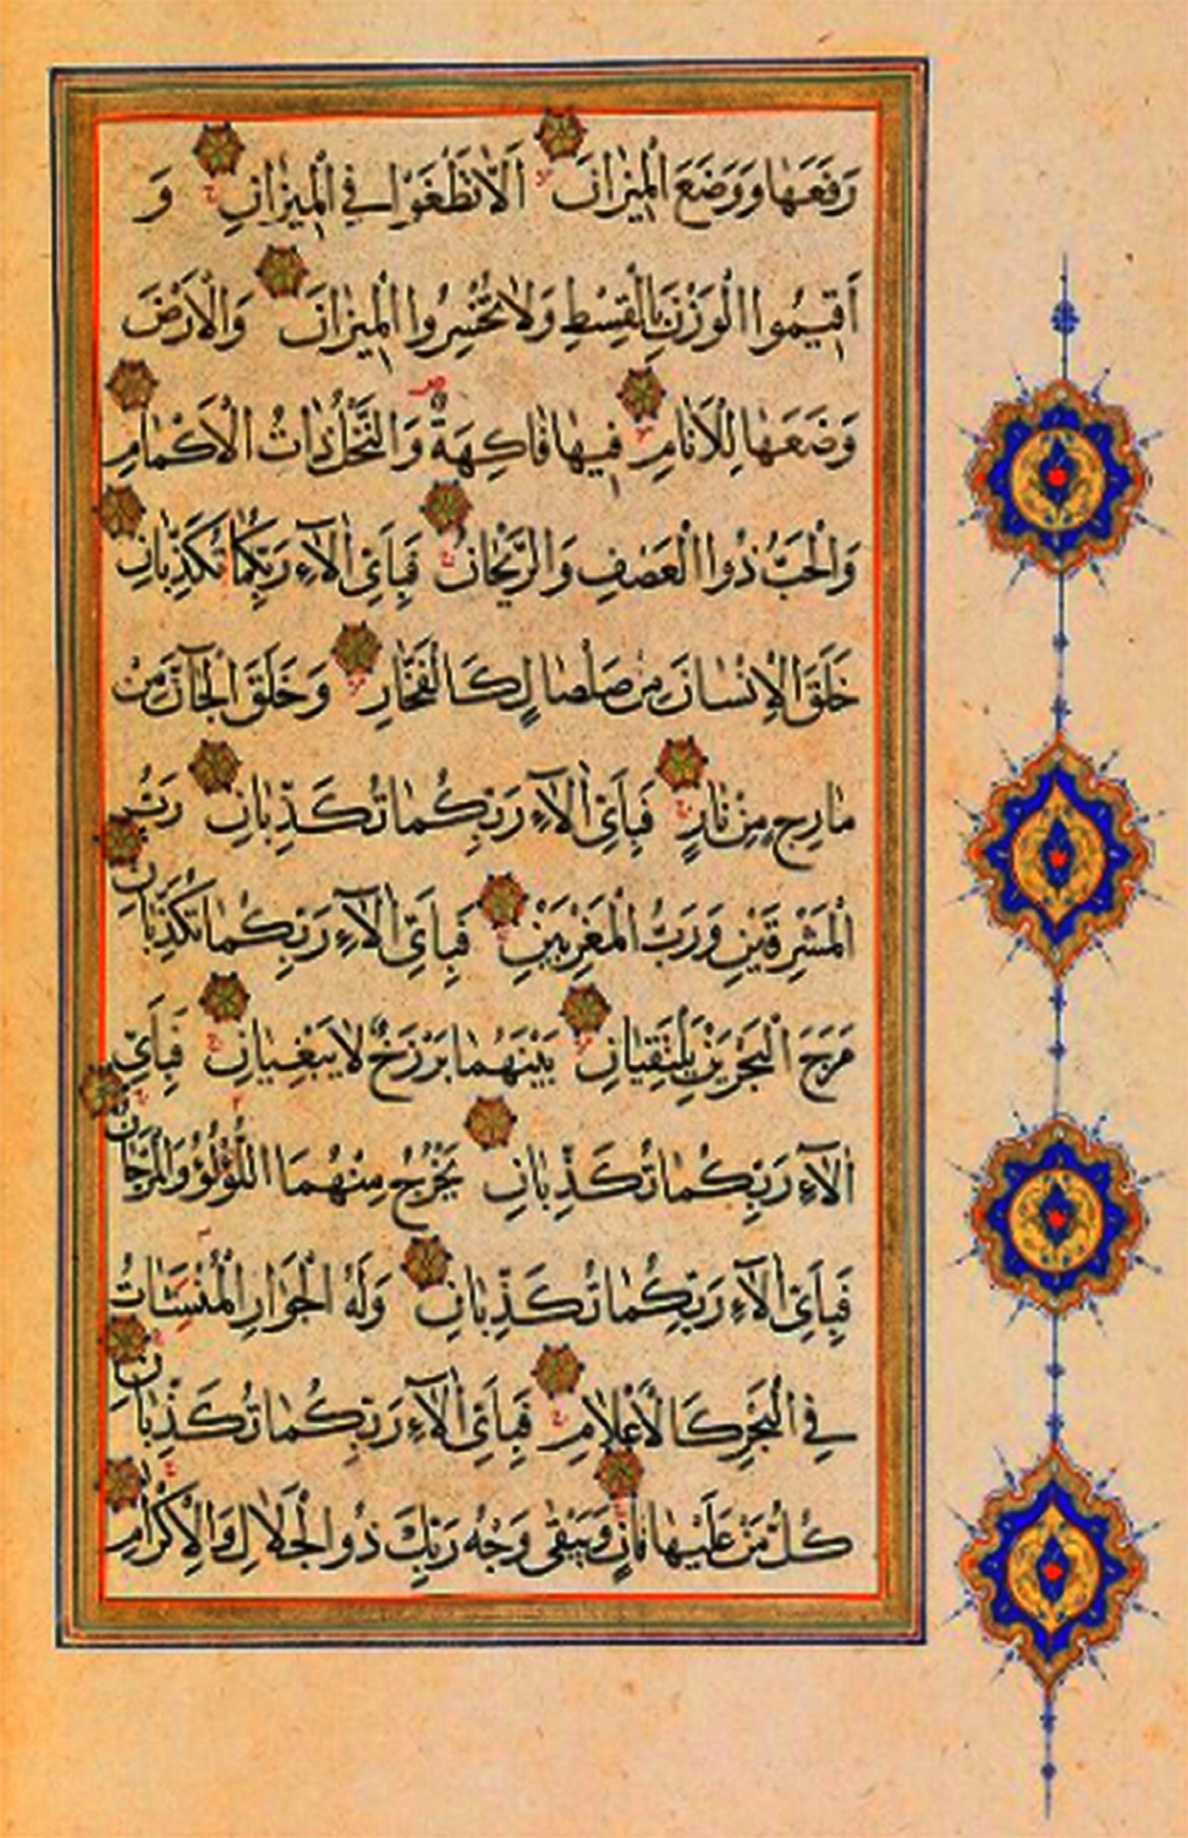 رَفَعَهَا وَوَضَعَ الْمِيزَانَ اَلَّا تَطْغَوْا فِي الْمِيزَانِ وَ
اَقِيمُوا الْوَزْنَ بِالْقِسْطِ وَلَا تُخْسِرُوا الْمِيزَانَ وَالْاَرْضَ
وَضَعَهَا لِلْاَنَامِ فِيهَا فَاكِهَةٌ وَالنَّخْلُ ذَاتُ الْاَكْمَامِ
وَالْحَبُّ ذُوا الْعَصْفِ وَالرَّيْحَانُ فَبِاَيِّ اٰلَآءِ رَبِّكُمَا تُكَذِّبَانِ
خَلَقَ الْاِنْسَانَ مِنْ صَلْصَالٍ كَالْفَخَّارِ وَخَلَقَ الْجَآنَّ مِنْ
مَارِجٍ مِنْ نَارٍ فَبِاَيِّ اٰلَآءِ رَبِّكُمَا تُكَذِّبَانِ رَبُّ
الْمَشْرِقَيْنِ وَرَبُّ الْمَغْرِبَيْنِ فَبِاَيِّ اٰلَآءِ رَبِّكُمَا تُكَذِّبَانِ
مَرَجَ الْبَحْرَيْنِ يَلْتَقِيَانِ بَيْنَهُمَا بَرْزَخٌ لَا يَبْغِيَانِ فَبِاَيِّ
اٰلَآءِ رَبِّكُمَا تُكَذِّبَانِ يَخْرُجُ مِنْهُمَا اللُّؤْلُؤُ وَالْمَرْجَانُ
فَبِاَيِّ اٰلَآءِ رَبِّكُمَا تُكَذِّبَانِ وَلَهُ الْجَوَارِ الْمُنْشَئَاتُ
فِي الْبَحْرِ كَالْاَعْلَامِ فَبِاَيِّ اٰلَآءِ رَبِّكُمَا تُكَذِّبَانِ
كُلُّ مَنْ عَلَيْهَا فَانٍ وَيَبْقٰى وَجْهُ رَبِّكَ ذُو الْجَلَالِ وَالْاِكْرَامِ